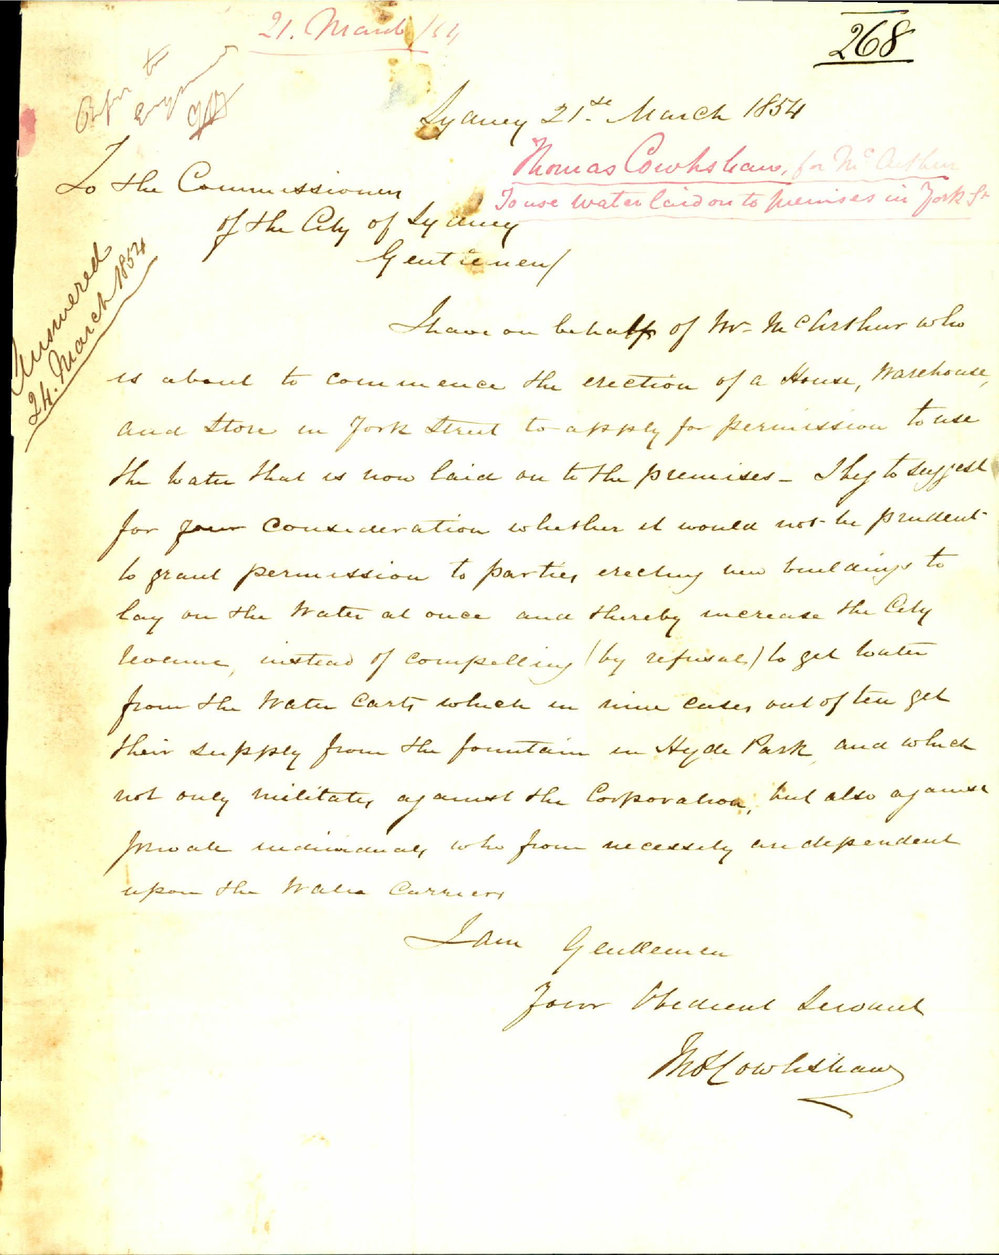 21. March/54
268
Refer to
Engineer
Sydney 21st. March 1854
Thomas Cowlishaw, for Mc Arthur
To use water laid on to premises in York St
To the Commissioners
of the City of Sydney
Gentlemen/
Answered
24. March 1854
I have on behalf of Mr. McArthur who
is about to commence the erection of a House, Warehouse,
and Store in York Street to apply for permission to use
the water that is now laid on to the premises - I beg to suggest
for your consideration whether it would not be prudent
to grant permission to parties erecting new buildings to
lay on the Water at once and thereby increase the City
Revenue, instead of compelling (by refusal) to get water
from the Water Carts which in nine cases out of ten get
their supply from the fountain in Hyde Park, and which
not only militates against the Corporation, but also against
private individuals who from necessity are dependent
upon the Water Carriers
I am Gentlemen
Your Obedient Servant
Thos Cowlishaw